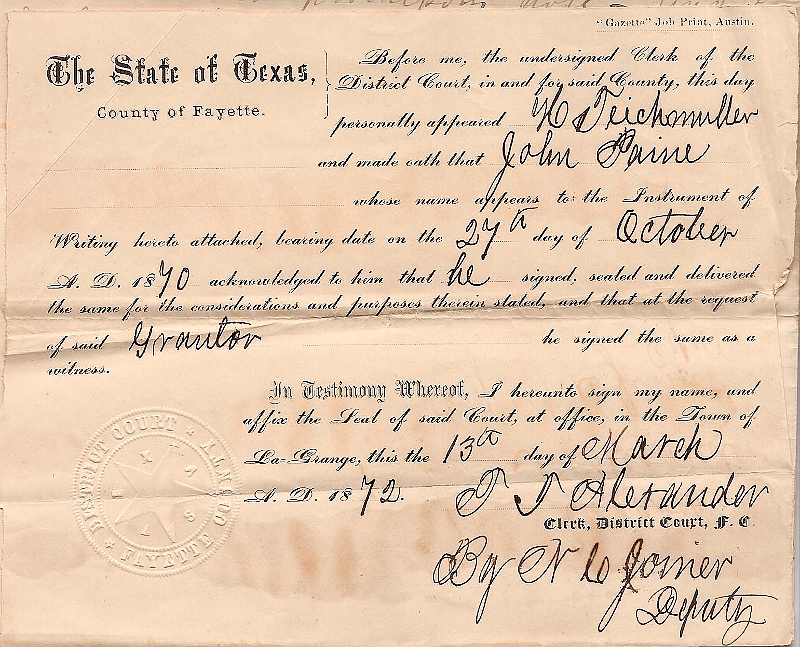 "Gazette" Job Print, Austin.
The State of Texas,
County of Fayette.
Before me, the undersigned Clerk of the
District Court, in and for said County, this day
personally appeared H Teichmuller
and made oath that John Paine
whose name appears to the Instrument of
Writing hereto attached, bearing date on the 27th day of October
A. D. 1870 acknowledged to him that he signed, sealed and delivered
the same for the considerations and purposes therein stated, and that at the request
of said Grantor he signed the same as a
witness.
In Testimony Whereof, I hereunto sign my name, and
affix the Seal of said Court, at office, in the Town of
La-Grange, this the 13th day of March
A. D. 1872.
T J Alexander
Clerk, District Court, F. C.
By N C Joiner
Deputy
DISTRICT COURT
FAYETTE
TEXAS